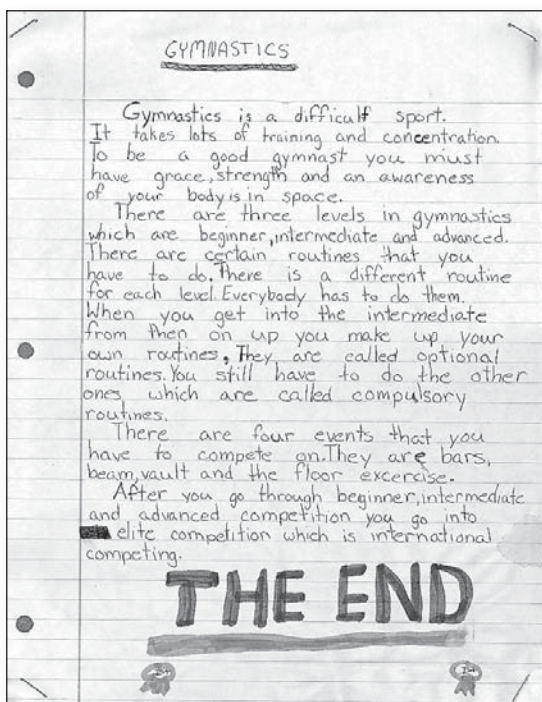 GYMNASTICS
Gymnastics is a difficult sport.
It takes lots of training and concentration.
To be a good gymnast you must
have grace, strength and an awareness
of your body is in space.
There are three levels in gymnastics
which are beginner, intermediate and advanced.
There are certain routines that you
have to do. There is a different routine
for each level. Everybody has to do them.
When you get into the intermediate
from then on up you make up your
own routines, They are called optional
routines. You still have to do the other
ones which are called compulsory
routines.
There are four events that you
have to compete on. They are bars,
beam, vault and the floor excercise.
After you go through beginner, intermediate
and advanced competition you go into
elite competition which is international
competing.
THE END
1st 1st